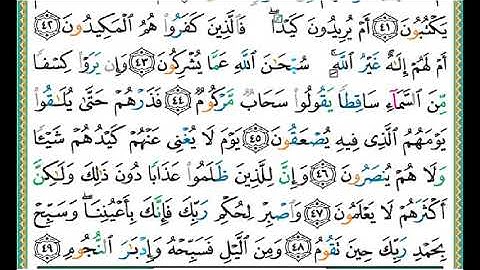 يَكْتُبُونَ ﴿٤١﴾ أَمْ يُرِيدُونَ كَيْدًا ۖ فَالَّذِينَ كَفَرُوا هُمُ الْمَكِيدُونَ ﴿٤٢﴾
أَمْ لَهُمْ إِلَٰهٌ غَيْرُ اللَّهِ ۚ سُبْحَانَ اللَّهِ عَمَّا يُشْرِكُونَ ﴿٤٣﴾ وَإِن يَرَوْا كِسْفًا
مِّنَ السَّمَاءِ سَاقِطًا يَقُولُوا سَحَابٌ مَّرْكُومٌ ﴿٤٤﴾ فَذَرْهُمْ حَتَّىٰ يُلَاقُوا
يَوْمَهُمُ الَّذِي فِيهِ يُصْعَقُونَ ﴿٤٥﴾ يَوْمَ لَا يُغْنِي عَنْهُمْ كَيْدُهُمْ شَيْئًا
وَلَا هُمْ يُنصَرُونَ ﴿٤٦﴾ وَإِنَّ لِلَّذِينَ ظَلَمُوا عَذَابًا دُونَ ذَٰلِكَ وَلَٰكِنَّ
أَكْثَرَهُمْ لَا يَعْلَمُونَ ﴿٤٧﴾ وَاصْبِرْ لِحُكْمِ رَبِّكَ فَإِنَّكَ بِأَعْيُنِنَا ۖ وَسَبِّحْ
بِحَمْدِ رَبِّكَ حِينَ تَقُومُ ﴿٤٨﴾ وَمِنَ اللَّيْلِ فَسَبِّحْهُ وَإِدْبَارَ النُّجُومِ ﴿٤٩﴾